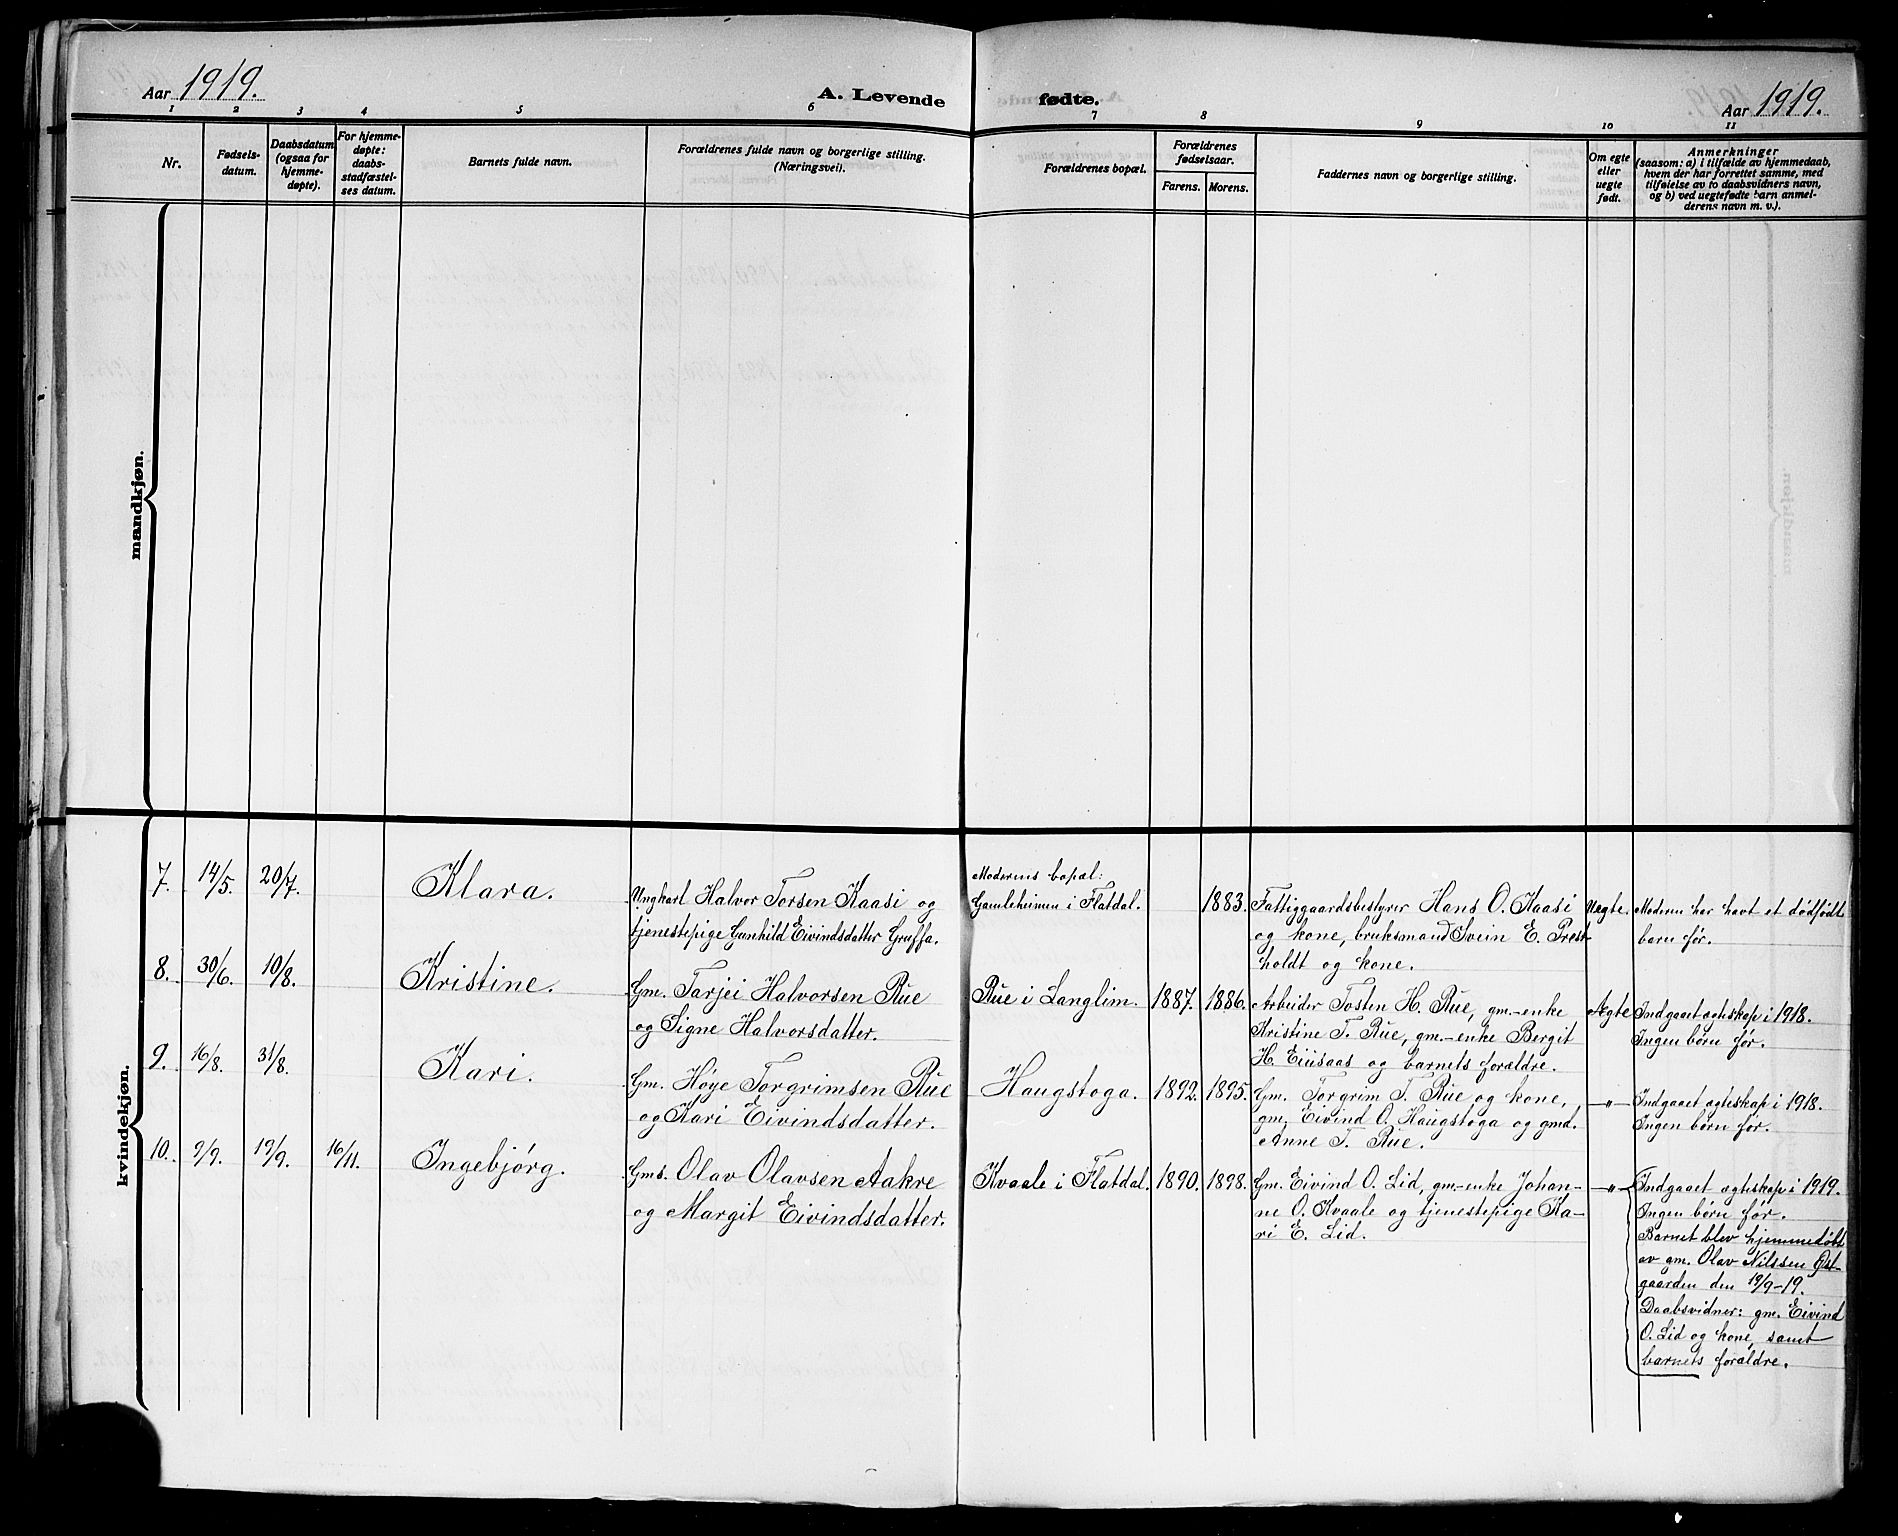 Aar 1919.
A. Levende
fødte.
Aar 1919.
1 2 3 4 5 6 7 8 9 10 11
Nr.
Fødsels-
datum.
Daabsdatum
(ogsaa for
hjemme-
døpte).
For hjemme-
døpte:
daabs-
stadfæstel-
ses datum.
Barnets fulde navn.
Forældrenes fulde navn og borgerlige stilling.
(Næringsvei).
Forældrenes bopæl.
Forældrenes
fødselsaar.
Farens. Morens.
Faddernes navn og borgerlige stilling.
Om egte
eller
uegte
født.
Anmerkninger
(saasom: a) i tilfælde av hjemmedaab,
hvem der har forrettet samme, med
tilføielse av to daabsvidners navn,
og b) ved uegtefødte barn anmel-
derens navn m. v.).
mandkjøn.
kvindekjøn.
7. 14/5. 20/7. Klara.
Ungkarl Halvor Torsen Kaasi og
tjenestepige Gunhild Eivindsdatter Gruffa.
Moderens bopæl:
Gamleheimen i Flatdal.
1883.
Fattiggaardsbestyrer Hans O. Kaasi
og kone, bruksmand Svein E. Prest-
holdt og kone.
Uegte.
Moderen har havt et dødfødt
barn før.
8. 30/6. 10/8. Kristine.
Gm. Tarjei Halvorsen Rue
og Signe Halvorsdatter.
Rue i Langlim. 1887. 1886.
Arbeider Tosten H. Rue, gm.-enke
Kristine T. Rue, gm.-enke Bergit
H. Eiusaas og barnets forældre.
Ægte
Indgaaet egteskap i 1918.
Ingen børn før.
9. 16/8. 31/8. Kari.
Gm. Høye Torgrimsen Rue
og Kari Eivindsdatter.
Haugstoga. 1892. 1895.
Gm. Torgrim T. Rue og kone,
gm. Eivind O. Haugstoga og gmd.
Anne T. Rue.
—"—
Indgaaet egteskap i 1918.
Ingen børn før.
10. 9/9. 19/9. 16/11. Ingebjørg.
Gms. Olav Olavsen Aakre
og Margit Eivindsdatter.
Kvaale i Flatdal. 1890. 1898.
Gm. Eivind O. Lid, gm.-enke Johan-
ne O. Kvaale og tjenestepige Ka-
ri E. Lid.
—"—
Indgaaet egteskap i 1919.
Ingen børn før.
Barnet blev hjemmedøbt
av gm. Olav Nilssen Øst-
gaarden den 19/9-19.
Daabsvidner: gm. Eivind
O. Lid og kone, samt
barnets forældre.